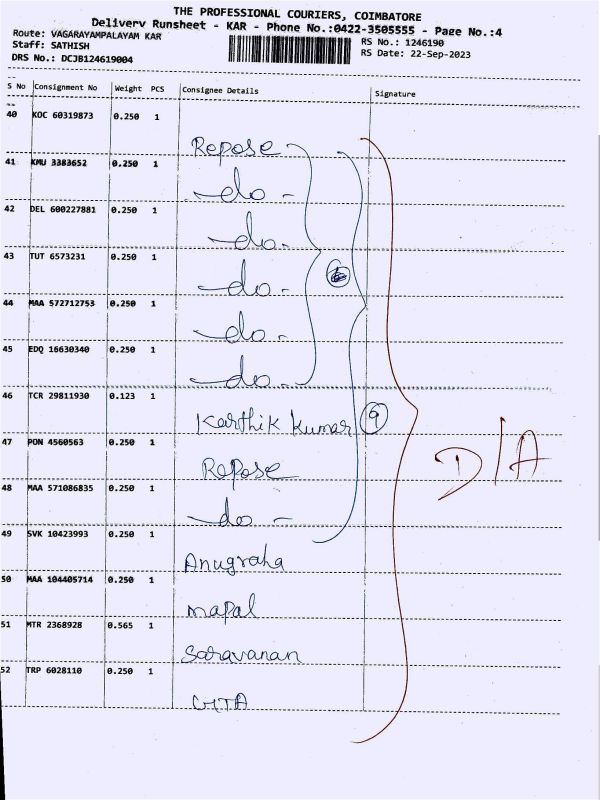 THE PROFESSIONAL COURIERS, COIMBATORE
Delivery Runsheet - KAR - Phone No.:0422-3505555 - Page No.:4
Route: VAGARAYAMPALAYAM KAR
RS No.: 1246190
Staff: SATHISH
RS Date: 22-Sep-2023
DRS No.: DCJB124619004
S No Consignment No Weight PCS Consignee Details Signature
40 KOC 60319873 0.250 1
Repose
41 KMU 3383652 0.250 1
-do-
42 DEL 600227881 0.250 1
-do-
43 TUT 6573231 0.250 1
-do-
44 MAA 572712753 0.250 1
-do-
45 EDQ 16630340 0.250 1
-do-
46 TCR 29811930 0.123 1
Karthik Kumar 9
47 PON 4560563 0.250 1
Repose
D/A
48 MAA 571086835 0.250 1
-do-
49 SVK 10423993 0.250 1
Anugraha
50 MAA 104405714 0.250 1
mapal
51 MTR 2368928 0.565 1
Saravanan
52 TRP 6028110 0.250 1